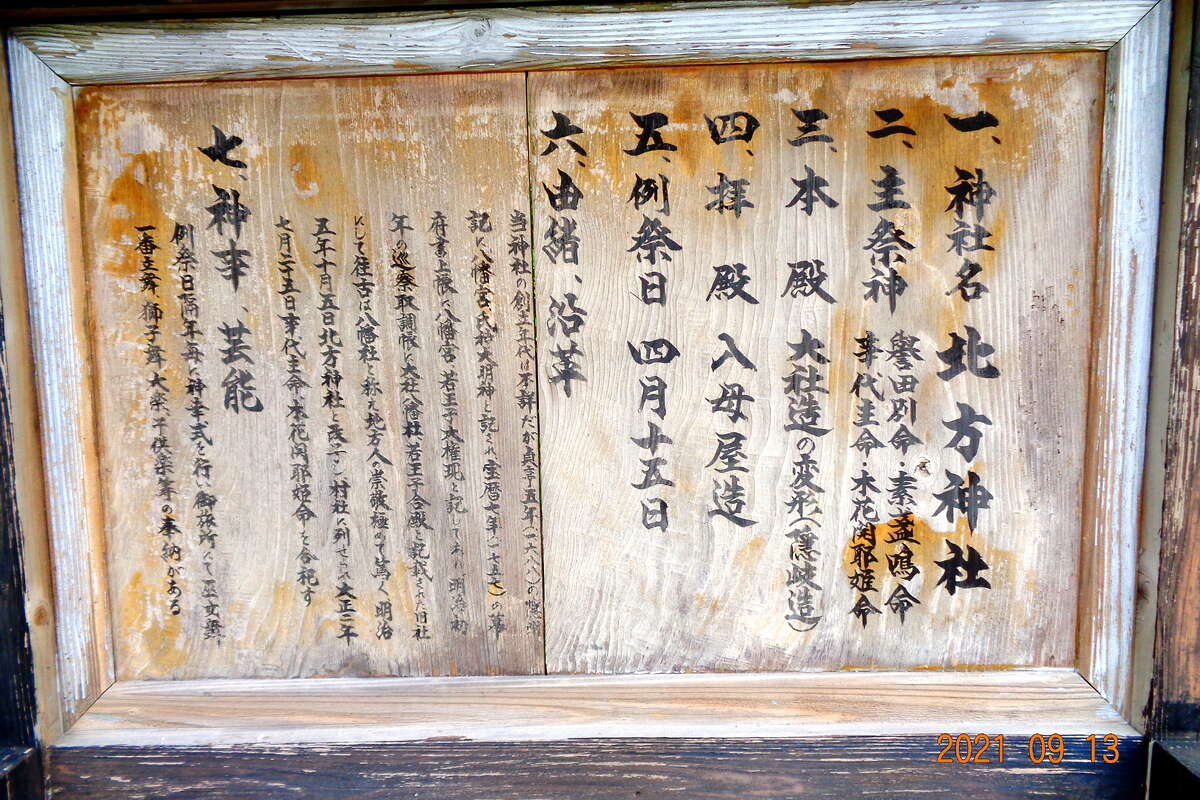 一、神社名 北方神社
二、主祭神 誉田別命・素盞鳴命
事代主命・木花開耶姫命
三、本殿 大社造の変形(隠岐造)
四、拝殿 入母屋造
五、例祭日 四月十五日
六、由緒、沿革
当神社の創立年代は不詳だが貞享五年(一六八八)の隠州
記に八幡宮氏神大明神と記され宝暦七年(一七五七)の幕
府書上帳に八幡宮、若王子大権現と記してあり、明治初
年の巡察取調帳に大社八幡社、若王子合殿と記載された旧社
にして往古は八幡社と称え北方人の崇敬極めて篤く明治
五年十月五日北方神社と改二し村社に列せられ大正二年
七月二十五日事代主命、木花開耶姫命を合祀す
七、神事、芸能
例祭日隔年毎に神幸式を行い御旅所にて巫女舞
一番立舞、獅子舞大楽、子供楽等の奉納がある
2021 09 13